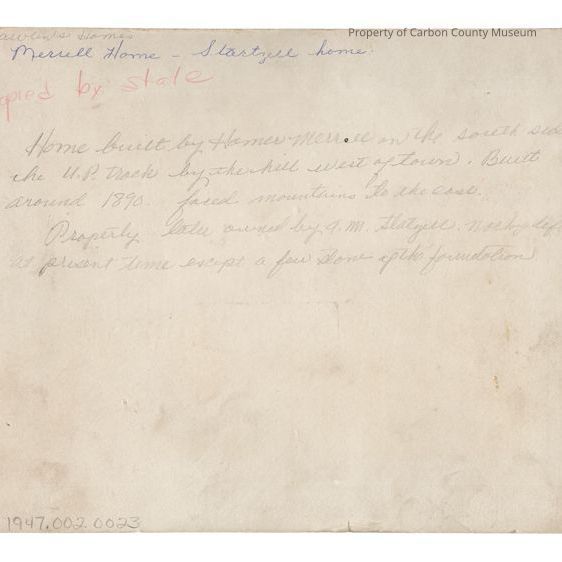 Property of Carbon County Museum
Homes
Merrell Home - Startzell home.
opied by state
Home built by Homer Merrell on the south side
the U.P. track by the hill west of town. Built
around 1890. faced mountains to the east.
Property later owned by A.M. Statzell.
at present time except a few stone of the foundation
1947.002.0023